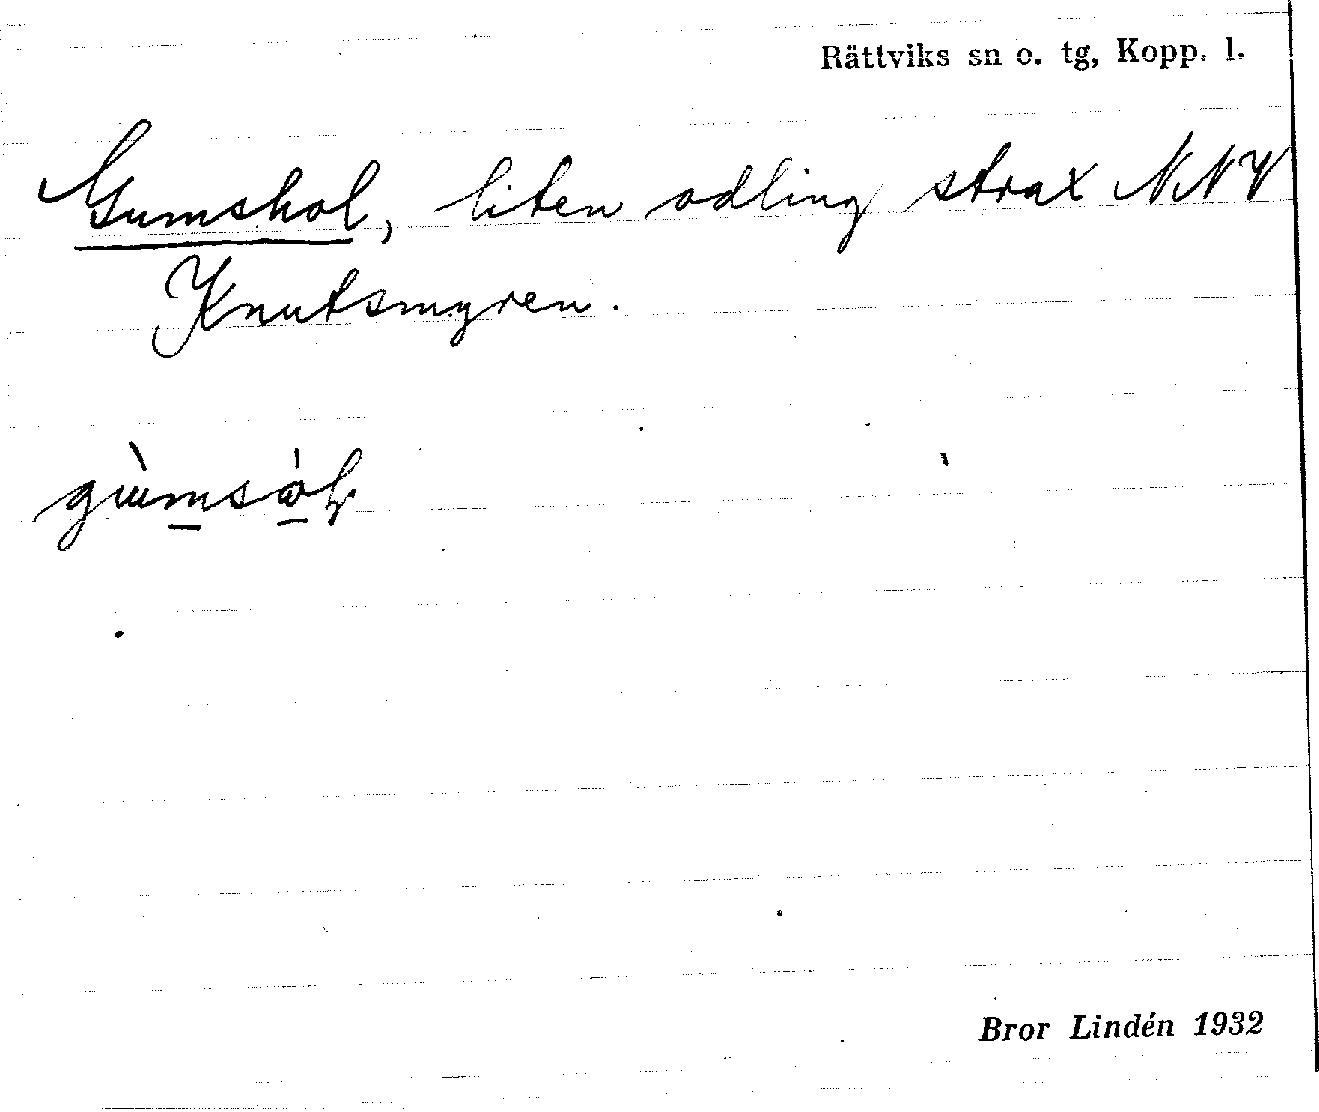 Rättviks sn o. tg, Kopp. l.
Gumshol, liten odling strax NNV
Knutsmyren.
Bror Lindén 1932